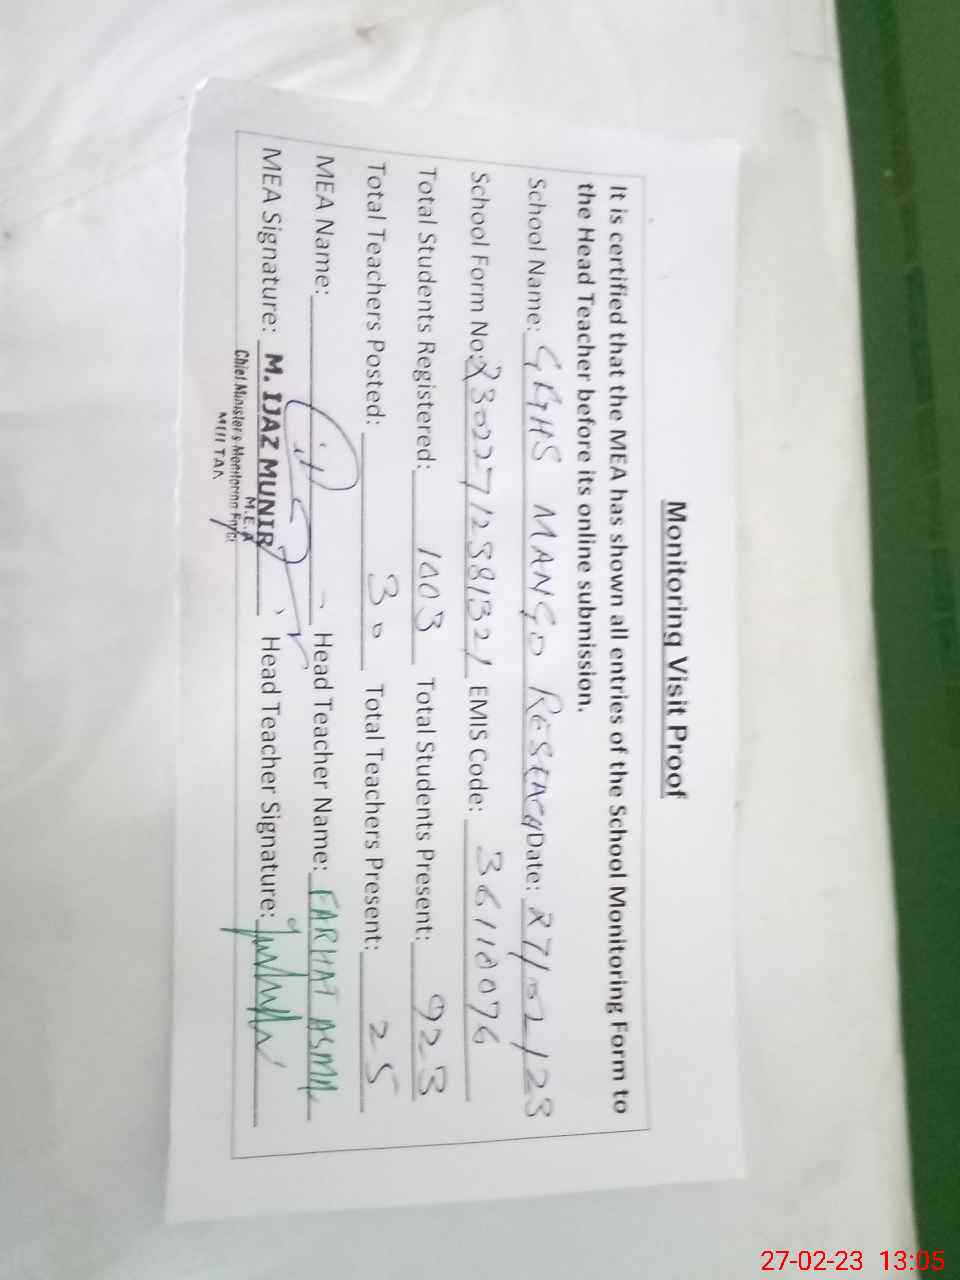 Monitoring Visit Proof
It is certified that the MEA has shown all entries of the School Monitoring Form to
the Head Teacher before its online submission.
School Name: GGHS MANGO RESEACH Date: 27/02/23
School Form No: 23022712581321 EMIS Code: 36110076
Total Students Registered: 1003 Total Students Present: 923
Total Teachers Posted: 30 Total Teachers Present: 25
MEA Name: Head Teacher Name: FARHAT ASMA
MEA Signature: M. IJAZ MUNIR Head Teacher Signature:
M.E.A
Chief Minister's Monitoring Force
MULTAN
27-02-23 13:05